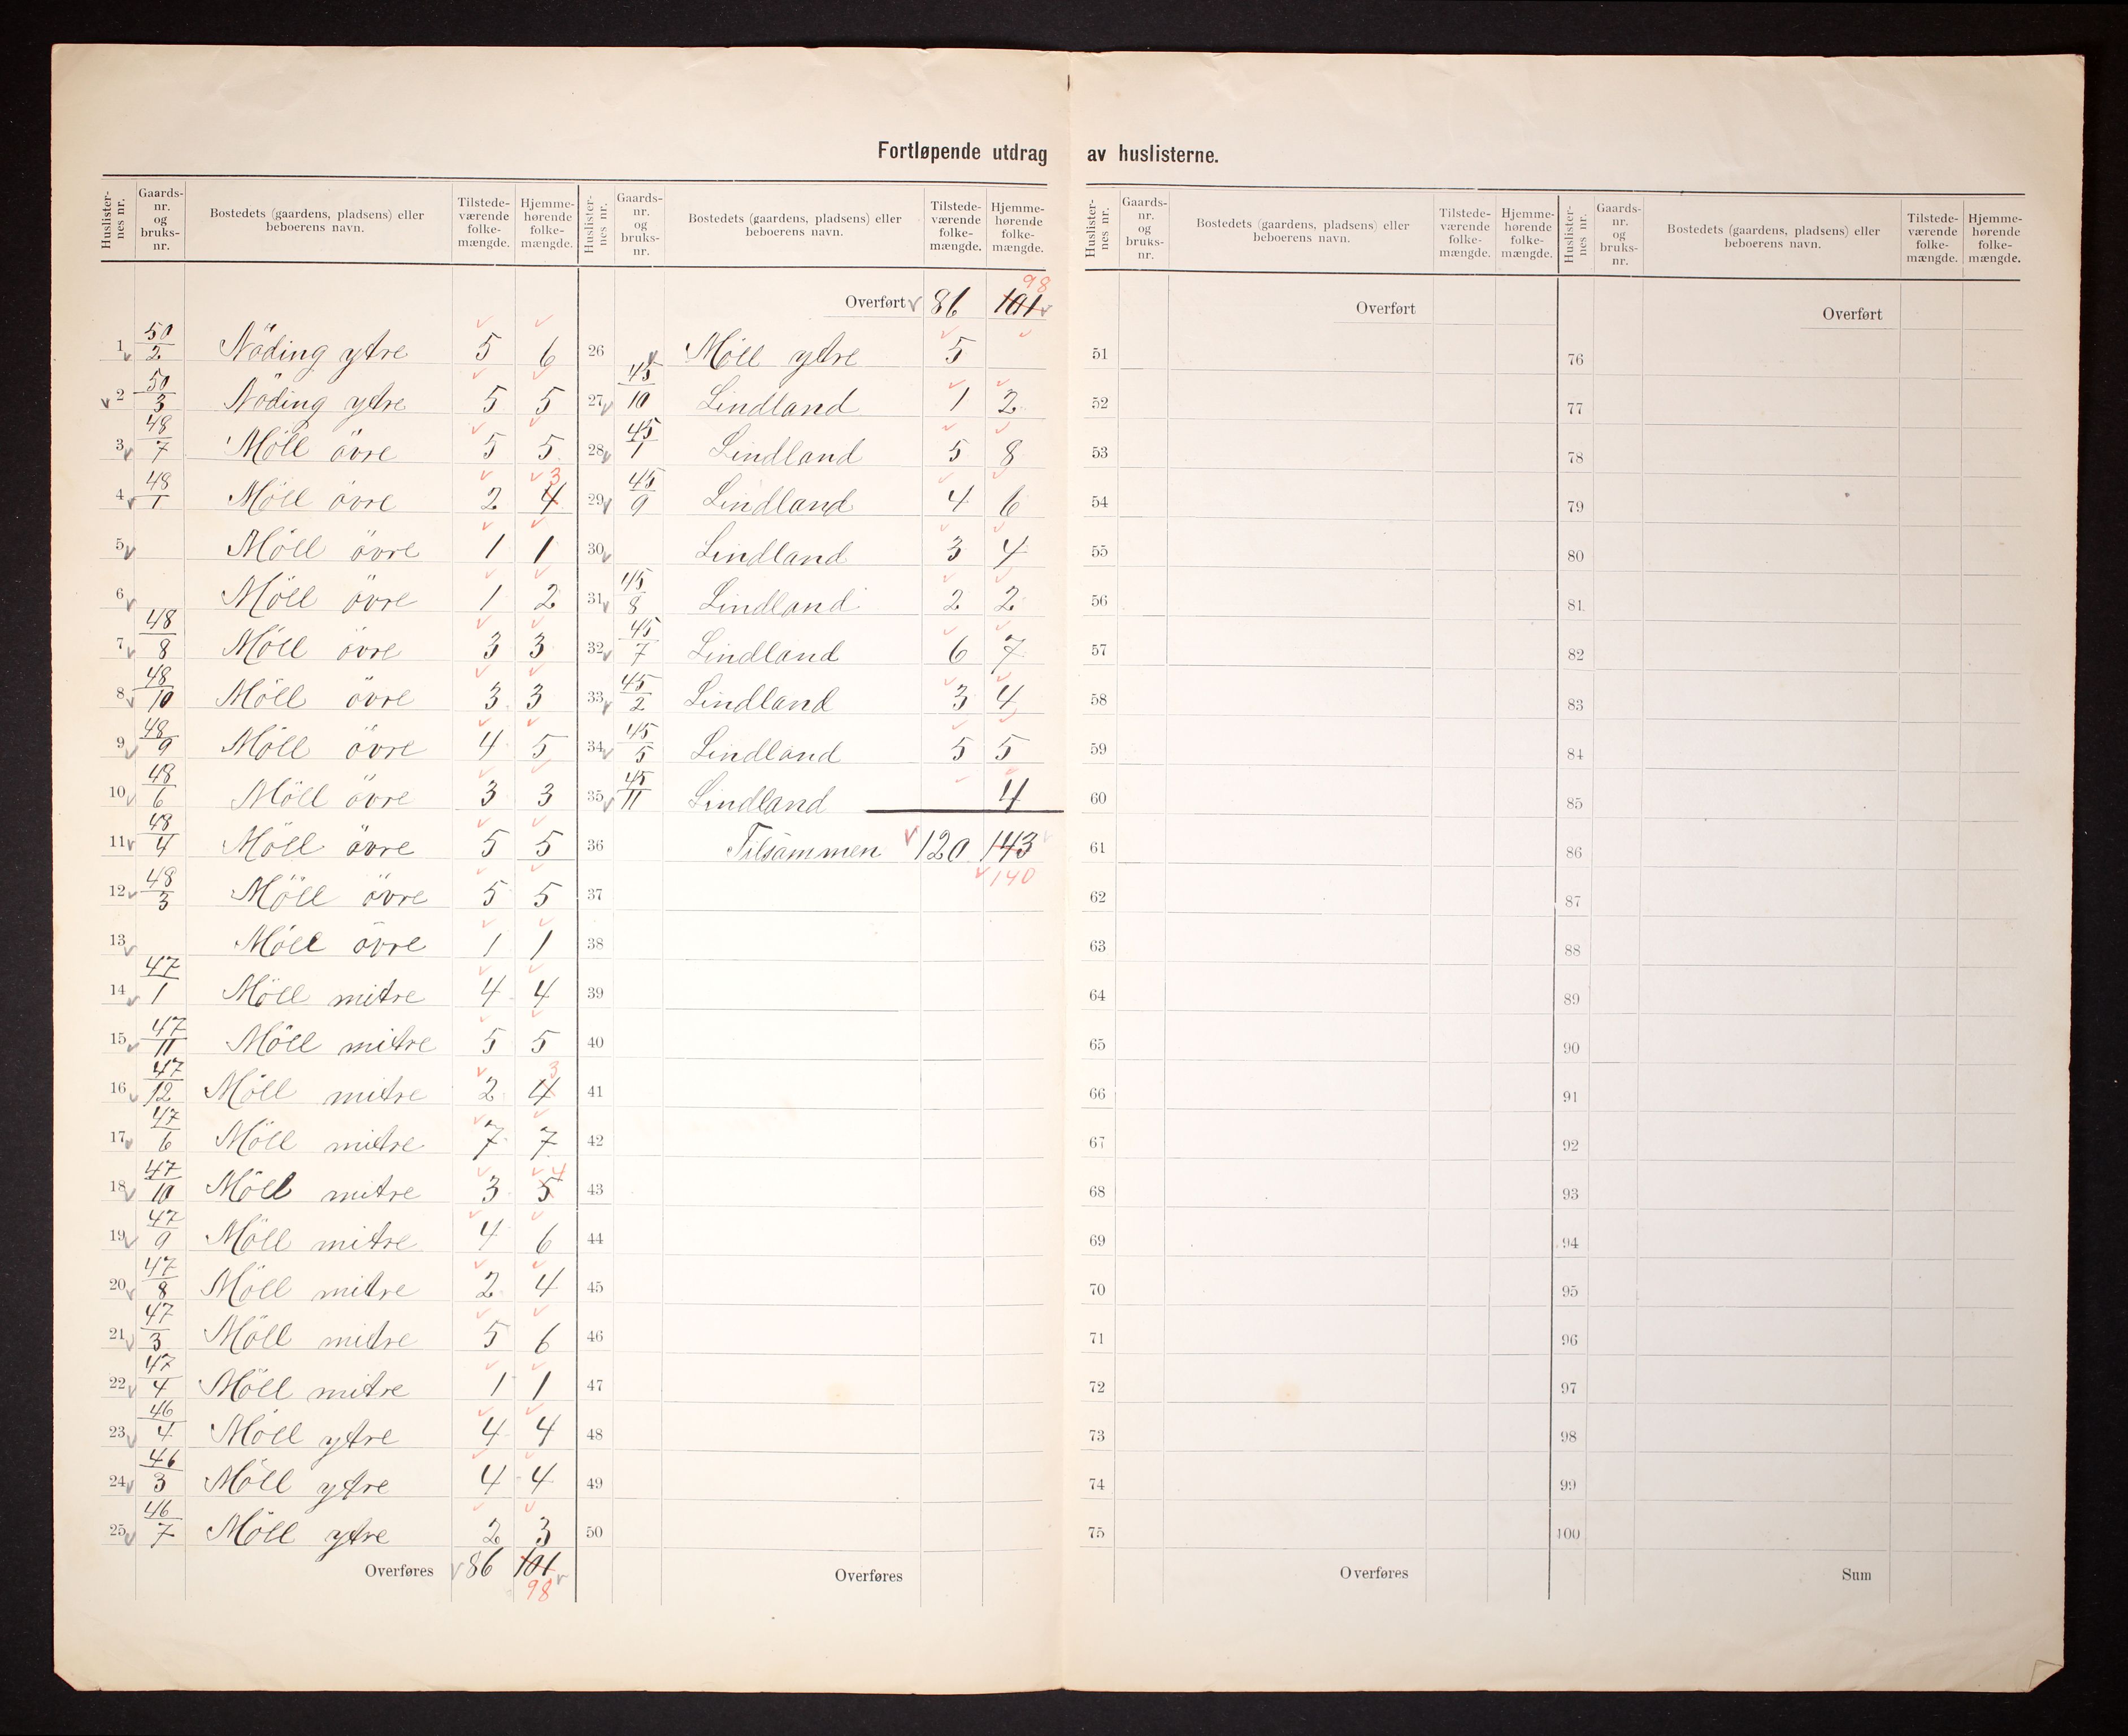 Fortløpende utdrag av huslisterne.
Huslisternes nr. Gaards-nr. og bruks-nr. Bostedets (gaardens, pladsens) eller beboerens navn. Tilstede-værende folke-mængde. Hjemme-hørende folke-mængde.
1 50/2 Nöding ytre 5 6
2 50/3 Nöding ytre 5 5
3 48/7 Möll övre 5 5
4 48/1 Möll övre 2 4 3
5 Möll övre 1 1
6 Möll övre 1 2
7 48/8 Möll övre 3 3
8 48/10 Möll övre 3 3
9 48/9 Möll övre 4 5
10 48/6 Möll övre 3 3
11 48/4 Möll övre 5 5
12 48/3 Möll övre 5 5
13 Möll övre 1 1
14 47/1 Möll mitre 4 4
15 47/11 Möll mitre 5 5
16 47/12 Möll mitre 2 4 3
17 47/6 Möll mitre 7 7
18 47/10 Möll mitre 3 5 4
19 47/9 Möll mitre 4 6
20 47/8 Möll mitre 2 4
21 47/3 Möll mitre 5 6
22 47/4 Möll mitre 1 1
23 46/4 Möll ytre 4 4
24 46/3 Möll ytre 4 4
25 46/7 Möll ytre 2 3
Overføres 86 101
98
Huslisternes nr. Gaards-nr. og bruks-nr. Bostedets (gaardens, pladsens) eller beboerens navn. Tilstede-værende folke-mængde. Hjemme-hørende folke-mængde.
98
Overført 86 101
26 Möll ytre 5
27 45/10 Lindland 1 2
28 45/1 Lindland 5 8
29 45/9 Lindland 4 6
30 Lindland 3 4
31 45/8 Lindland 2 2
32 45/7 Lindland 6 7
33 45/2 Lindland 3 4
34 45/5 Lindland 5 5
35 45/11 Lindland 4
36 Tilsammen 120 143
140
37
38
39
40
41
42
43
44
45
46
47
48
49
50
Overføres
Huslisternes nr. Gaards-nr. og bruks-nr. Bostedets (gaardens, pladsens) eller beboerens navn. Tilstede-værende folke-mængde. Hjemme-hørende folke-mængde.
Overført
51
52
53
54
55
56
57
58
59
60
61
62
63
64
65
66
67
68
69
70
71
72
73
74
75
Overføres
Huslisternes nr. Gaards-nr. og bruks-nr. Bostedets (gaardens, pladsens) eller beboerens navn. Tilstede-værende folke-mængde. Hjemme-hørende folke-mængde.
Overført
76
77
78
79
80
81
82
83
84
85
86
87
88
89
90
91
92
93
94
95
96
97
98
99
100
Sum